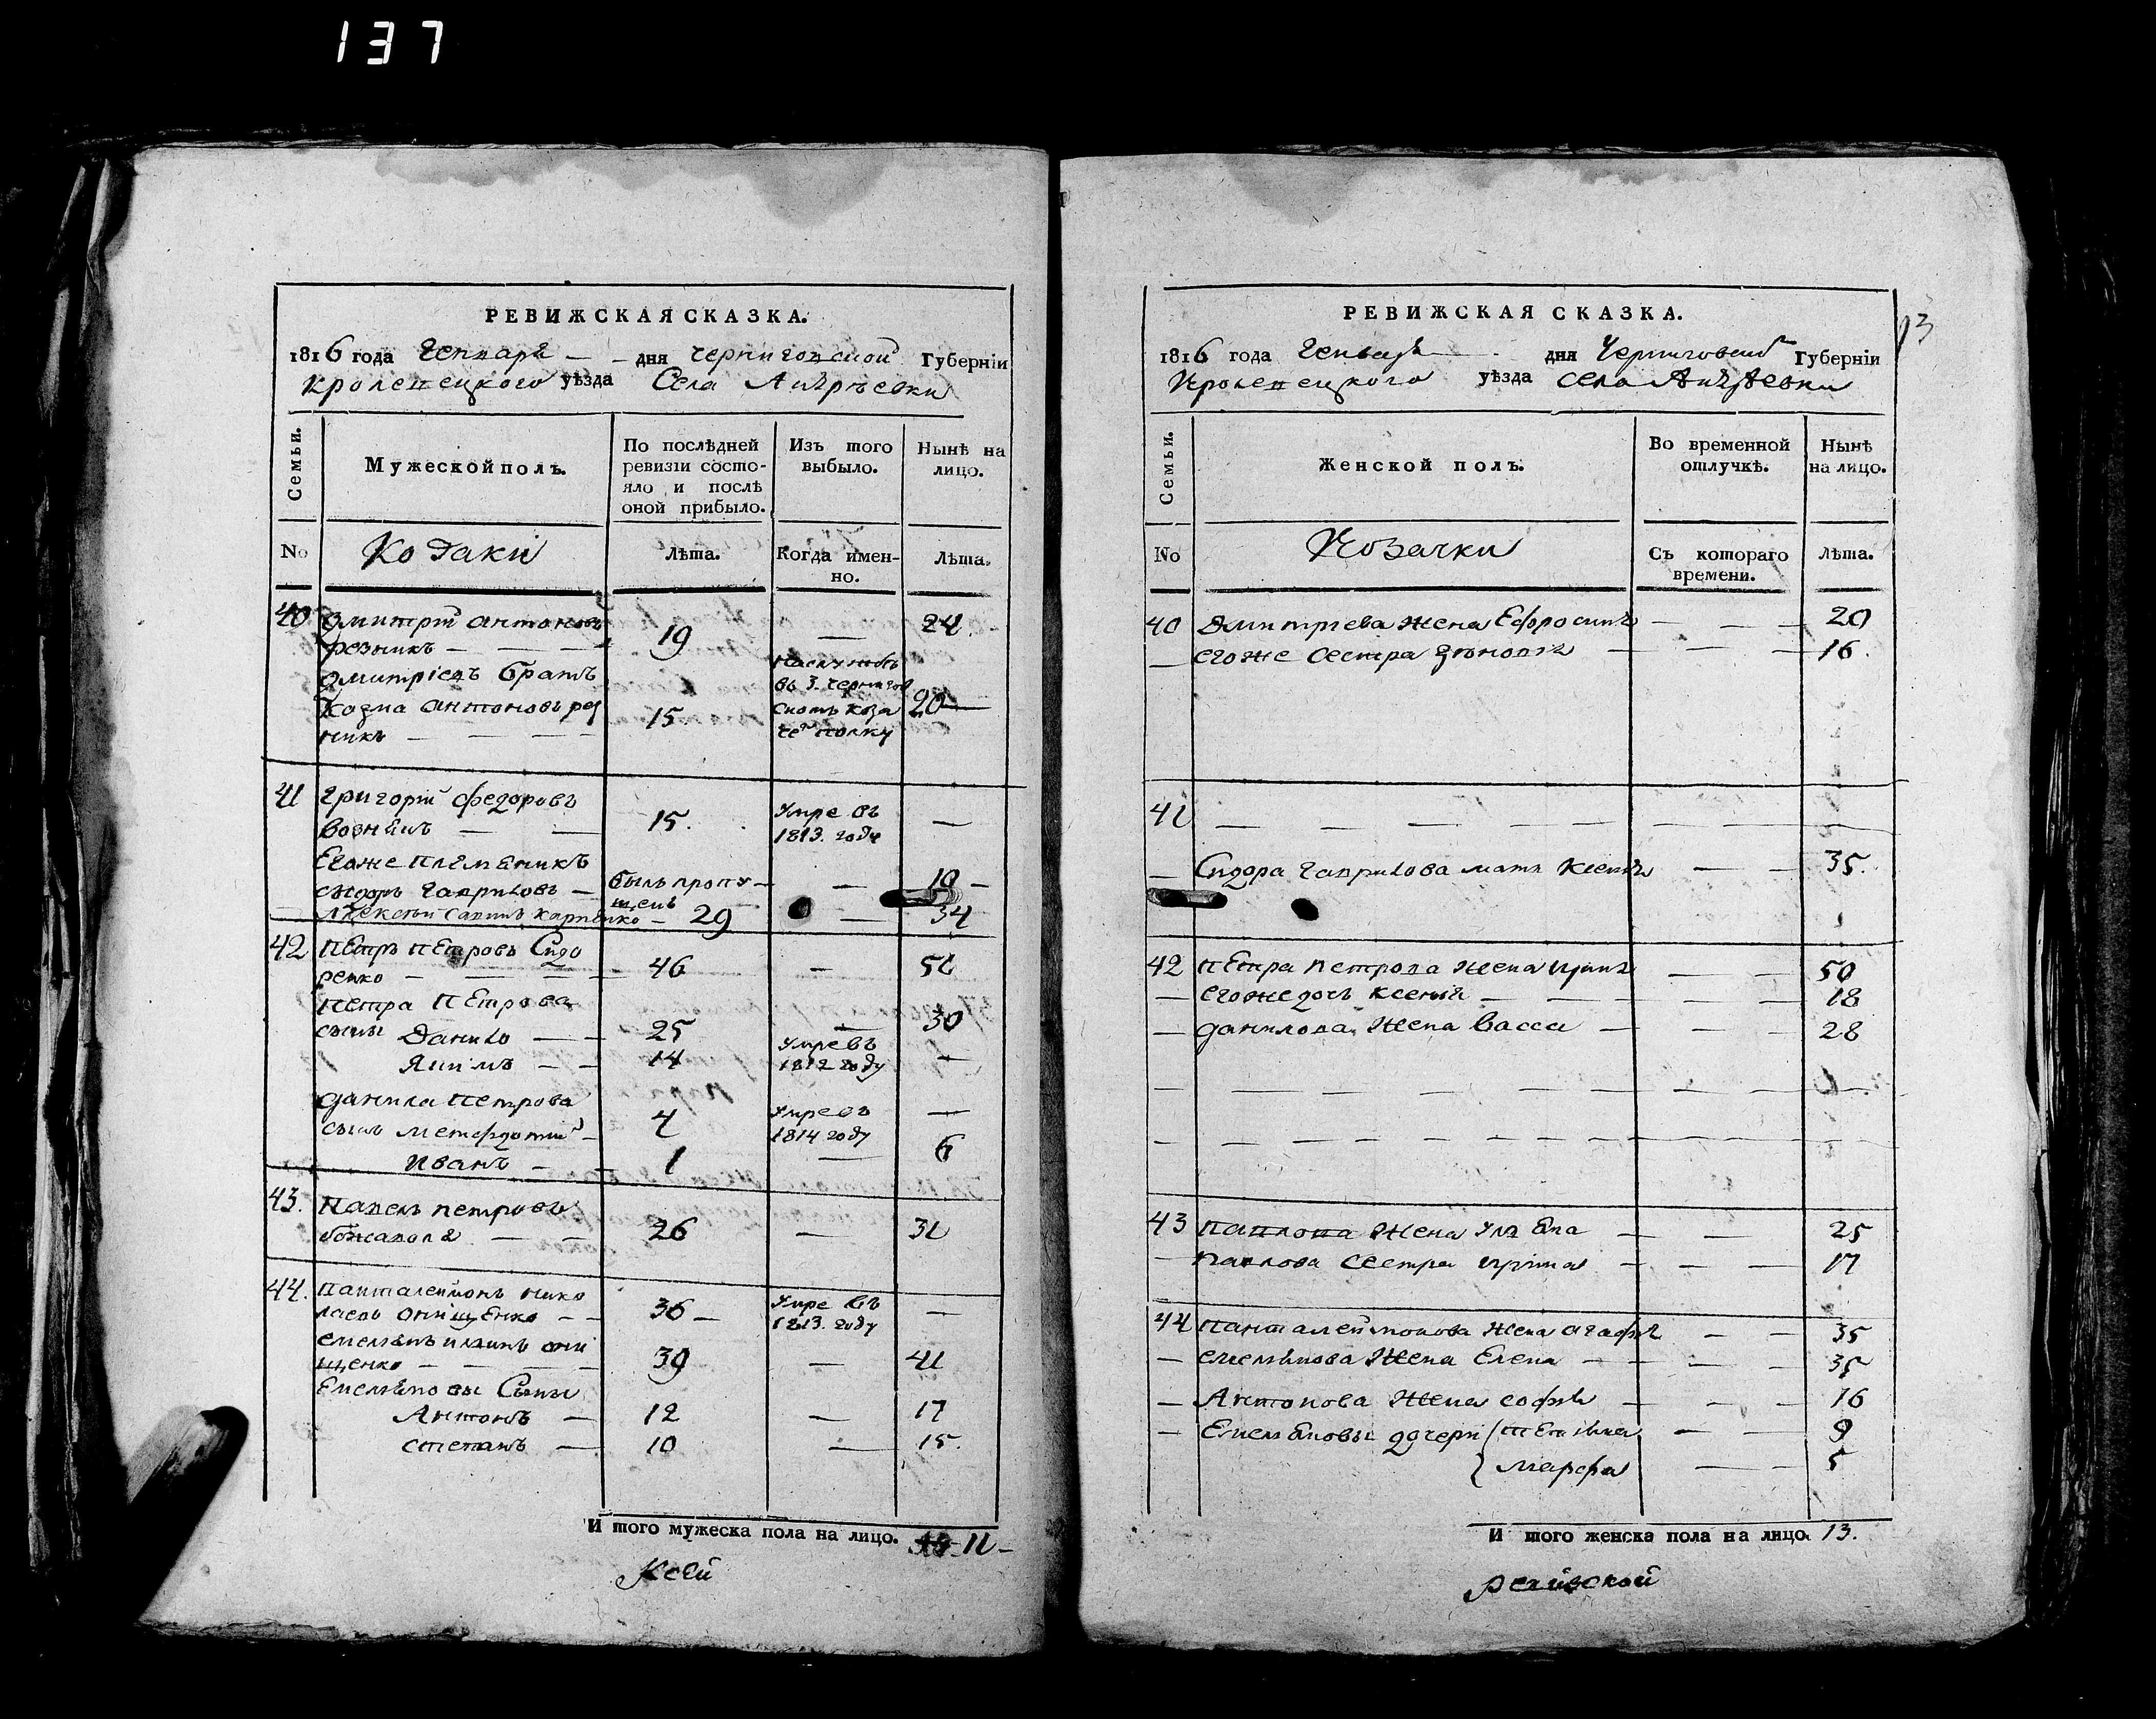 137
РЕВИЖСКАЯ СКАЗКА.
1816 года Генваря — дня черниговской Губерніи
кролевецкого уѣзда Села
Семьи.
Мужеской полъ.
По послѣдней ревизіи состояло и послѣ оной прибыло.
Изъ того выбыло.
Нынѣ на лицо.
No
Козаки
Лѣта.
Когда именно.
Лѣта.
40 Дмитрій антоновъ
резникъ — 19 — 24
Дмитріевъ братъ
Козма антоновъ рез
никъ — 15 на службѣ въ 3. чернигов скомъ коза чем полку 20 —
41 григорій федоровъ
15. Умре въ 1813. году —
Егоже племѣникъ
сидоръ гавриловъ — былъ пропу щенъ — 10 —
Алексѣй савинъ карпенко — 29 — 34
42 Петръ Петровъ Сидо
ренко — 46 — 51
петра петрова
сыны Данило — 25 — 30
Якимъ — 14 умре въ 1812 году —
данила петрова
сынъ мефодий — 4 умре въ 1814 году —
иванъ — 1 — 6
43. Павелъ петровъ
26 — 31
44. панталеймонъ нико
лаевъ онищенко — 36 — Умре въ 1813. году —
емельянъ илиинъ они
щенко — 39 — 41
Емельяновы Сыны
Антонъ — 12 — 17
степанъ — 10 — 15.
И того мужеска пола на лицо. 11 —
Кеви
13
РЕВИЖСКАЯ СКАЗКА.
1816 года Генваря дня Черниговской Губерніи
Кролевецкого уѣзда села
Семьи.
Женской полъ.
Во временной отлучкѣ.
Нынѣ на лицо.
No
Козачки
Съ котораго времени.
Лѣта.
40 Дмитріева жена Ефросинья — 20
— егоже сестра Зѣновія — 16.
41 —
— Сидора гаврилова мать ксенія — 35.
42 Петра петрова жена ирина — 50
— егоже дочь ксенія — 18
— данилова жена васса — 28
43 павлова жена улияна — 25
— павлова сестра ирина — 17
44 панталеймонова жена агафія — 35
— емельянова жена Елена — 35
— Антонова жена софія — 16
— Емельяновы дочери татьяна — 9
марфа — 5
И того женска пола на лицо. 13.